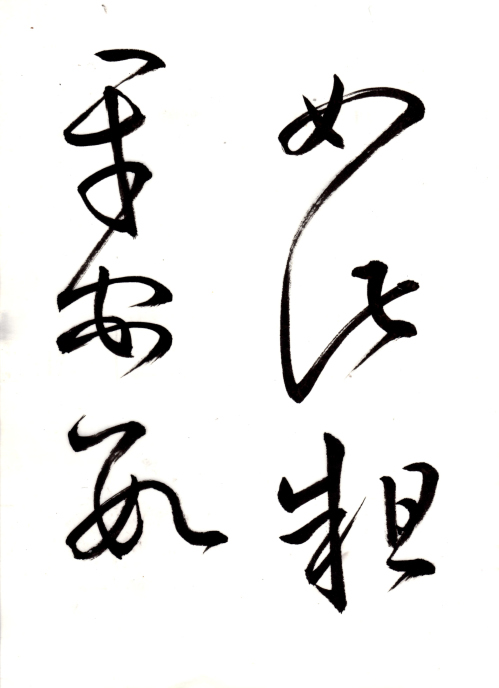 如此粗
平安